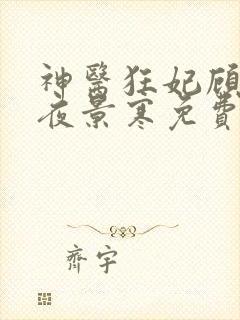 神醫狂妃顧
夜景寒免費
齊宇